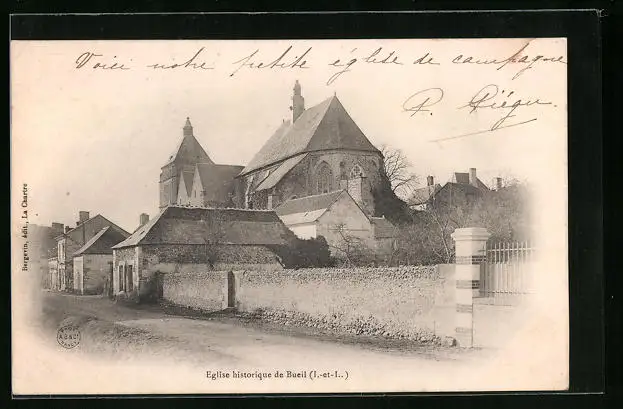 Voici notre petite église de campagne
P. Piégu
Bergevin, édit., La Chartre
Eglise historique de Bueil (I.-et-L.)